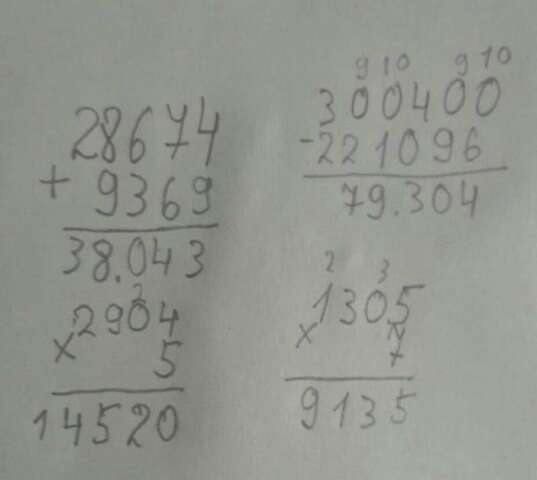 28674
+ 9369
38.043
9 10 9 10
300400
-221096
79.304
2
2904
x 5
14520
2 3
1305
x 7
9135